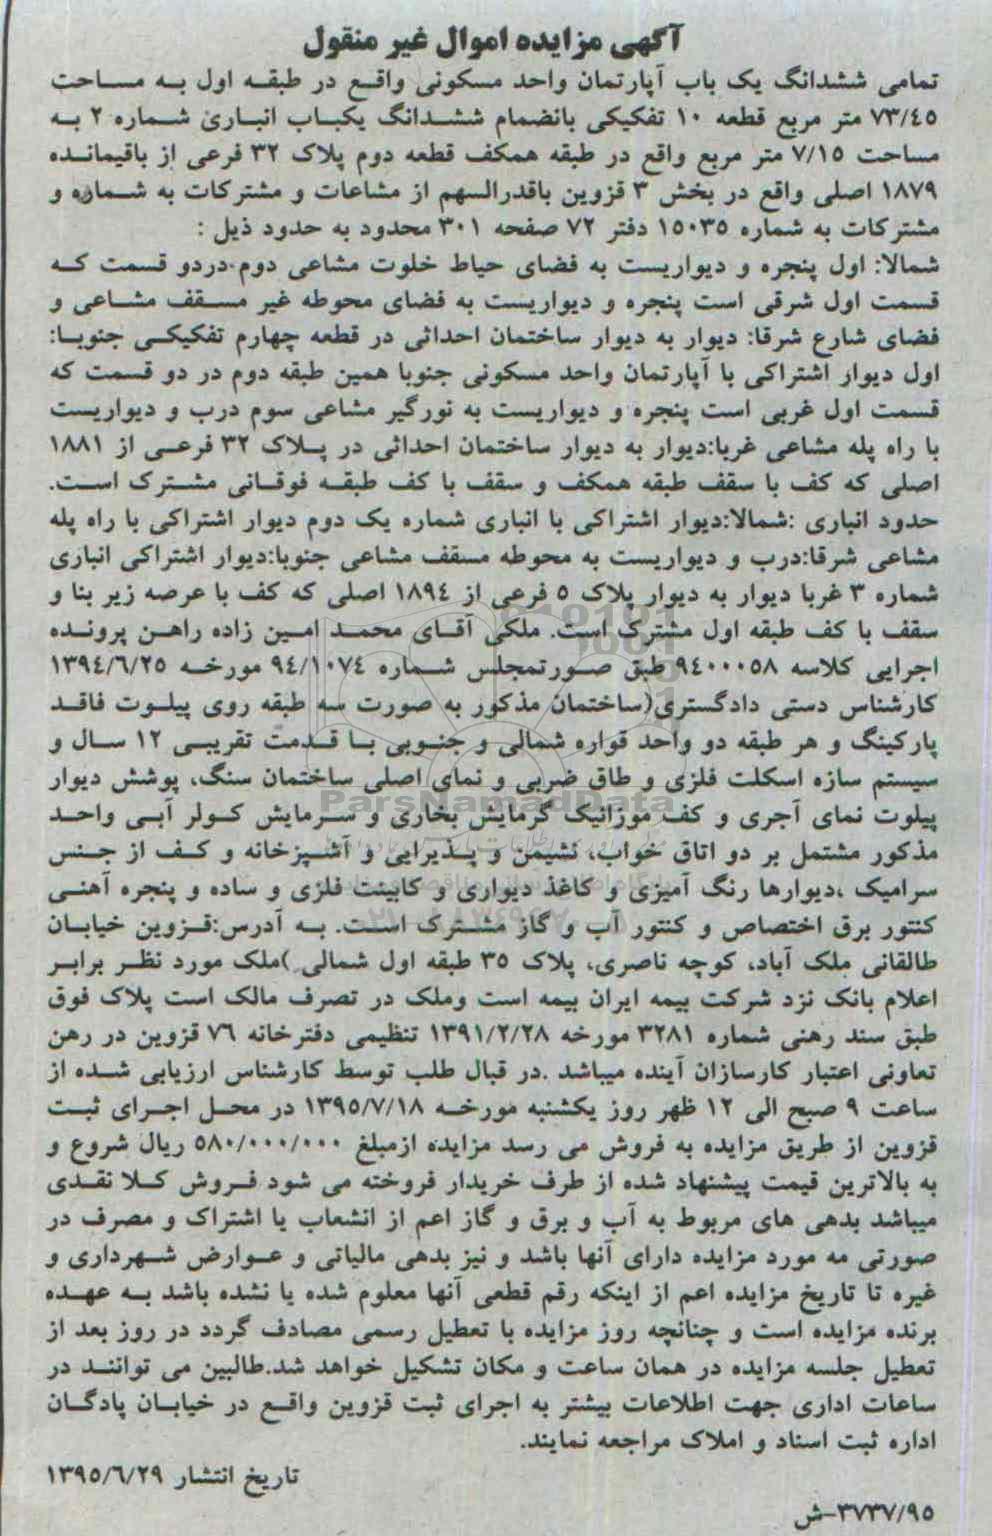 آگهی مزایده اموال غیر منقول
تمامی ششدانگ یک باب آپارتمان واحد مسکونی واقع در طبقه اول به مساحت
۷۳/۴۵ متر مربع قطعه ۱۰ تفکیکی بانضمام ششدانگ یکباب انباری شماره ۲ به
مساحت ۷/۱۵ متر مربع واقع در طبقه همکف قطعه دوم پلاک ۳۲ فرعی از باقیمانده
۱۸۷۹ اصلی واقع در بخش ۳ قزوین باقدرالسهم از مشاعات و مشترکات به شماره و
مشترکات به شماره ۱۵۰۳۵ دفتر ۷۲ صفحه ۳۰۱ محدود به حدود ذیل :
شمالا: اول پنجره و دیواریست به فضای حیاط خلوت مشاعی دوم دردو قسمت که
قسمت اول شرقی است پنجره و دیواریست به فضای محوطه غیر مسقف مشاعی و
فضای شارع شرقا: دیوار به دیوار ساختمان احداثی در قطعه چهارم تفکیکی جنوبا:
اول دیوار اشتراکی با آپارتمان واحد مسکونی جنوبا همین طبقه دوم در دو قسمت که
قسمت اول غربی است پنجره و دیواریست به نورگیر مشاعی سوم درب و دیواریست
با راه پله مشاعی غربا:دیوار به دیوار ساختمان احداثی در پلاک ۳۲ فرعی از ۱۸۸۱
اصلی که کف با سقف طبقه همکف و سقف با کف طبقه فوقانی مشترک است.
حدود انباری :شمالا:دیوار اشتراکی با انباری شماره یک دوم دیوار اشتراکی با راه پله
مشاعی شرقا:درب و دیواریست به محوطه مسقف مشاعی جنوبا:دیوار اشتراکی انباری
شماره ۳ غربا دیوار به دیوار پلاک ۵ فرعی از ۱۸۹۴ اصلی که کف با عرصه زیر بنا و
سقف با کف طبقه اول مشترک است. ملکی آقای محمد امین زاده راهن پرونده
اجرایی کلاسه ۹۴۰۰۰۵۸ طبق صورتمجلس شماره ۹۴/۱۰۷۴ مورخه ۱۳۹۴/۶/۲۵
کارشناس دستی دادگستری(ساختمان مذکور به صورت سه طبقه روی پیلوت فاقد
پارکینگ و هر طبقه دو واحد قواره شمالی و جنوبی با قدمت تقریبی ۱۲ سال و
سیستم سازه اسکلت فلزی و طاق ضربی و نمای اصلی ساختمان سنگ، پوشش دیوار
پیلوت نمای آجری و کف موزائیک گرمایش بخاری و سرمایش کولر آبی واحد
مذکور مشتمل بر دو اتاق خواب، نشیمن و پذیرایی و آشپزخانه و کف از جنس
سرامیک ،دیوارها رنگ آمیزی و کاغذ دیواری و کابینت فلزی و ساده و پنجره آهنی
کنتور برق اختصاص و کنتور آب و گاز مشترک است. به آدرس:قزوین خیابان
طالقانی ملک آباد، کوچه ناصری، پلاک ۳۵ طبقه اول شمالی )ملک مورد نظر برابر
اعلام بانک نزد شرکت بیمه ایران بیمه است وملک در تصرف مالک است پلاک فوق
طبق سند رهنی شماره ۳۲۸۱ مورخه ۱۳۹۱/۲/۲۸ تنظیمی دفترخانه ۷۶ قزوین در رهن
تعاونی اعتبار کارسازان آینده میباشد .در قبال طلب توسط کارشناس ارزیابی شده از
ساعت ۹ صبح الی ۱۲ ظهر روز یکشنبه مورخه ۱۳۹۵/۷/۱۸ در محل اجرای ثبت
قزوین از طریق مزایده به فروش می رسد مزایده ازمبلغ ۵۸۰/۰۰۰/۰۰۰ ریال شروع و
به بالاترین قیمت پیشنهاد شده از طرف خریدار فروخته می شود فروش کلا نقدی
میباشد بدهی های مربوط به آب و برق و گاز اعم از انشعاب یا اشتراک و مصرف در
صورتی مه مورد مزایده دارای آنها باشد و نیز بدهی مالیاتی و عوارض شهرداری و
غیره تا تاریخ مزایده اعم از اینکه رقم قطعی آنها معلوم شده یا نشده باشد به عهده
برنده مزایده است و چنانچه روز مزایده با تعطیل رسمی مصادف گردد در روز بعد از
تعطیل جلسه مزایده در همان ساعت و مکان تشکیل خواهد شد.طالبین می توانند در
ساعات اداری جهت اطلاعات بیشتر به اجرای ثبت قزوین واقع در خیابان پادگان
اداره ثبت اسناد و املاک مراجعه نمایند.
تاریخ انتشار ۱۳۹۵/۶/۲۹
۳۷۳۷/۹۵-ش
ParsNamadData